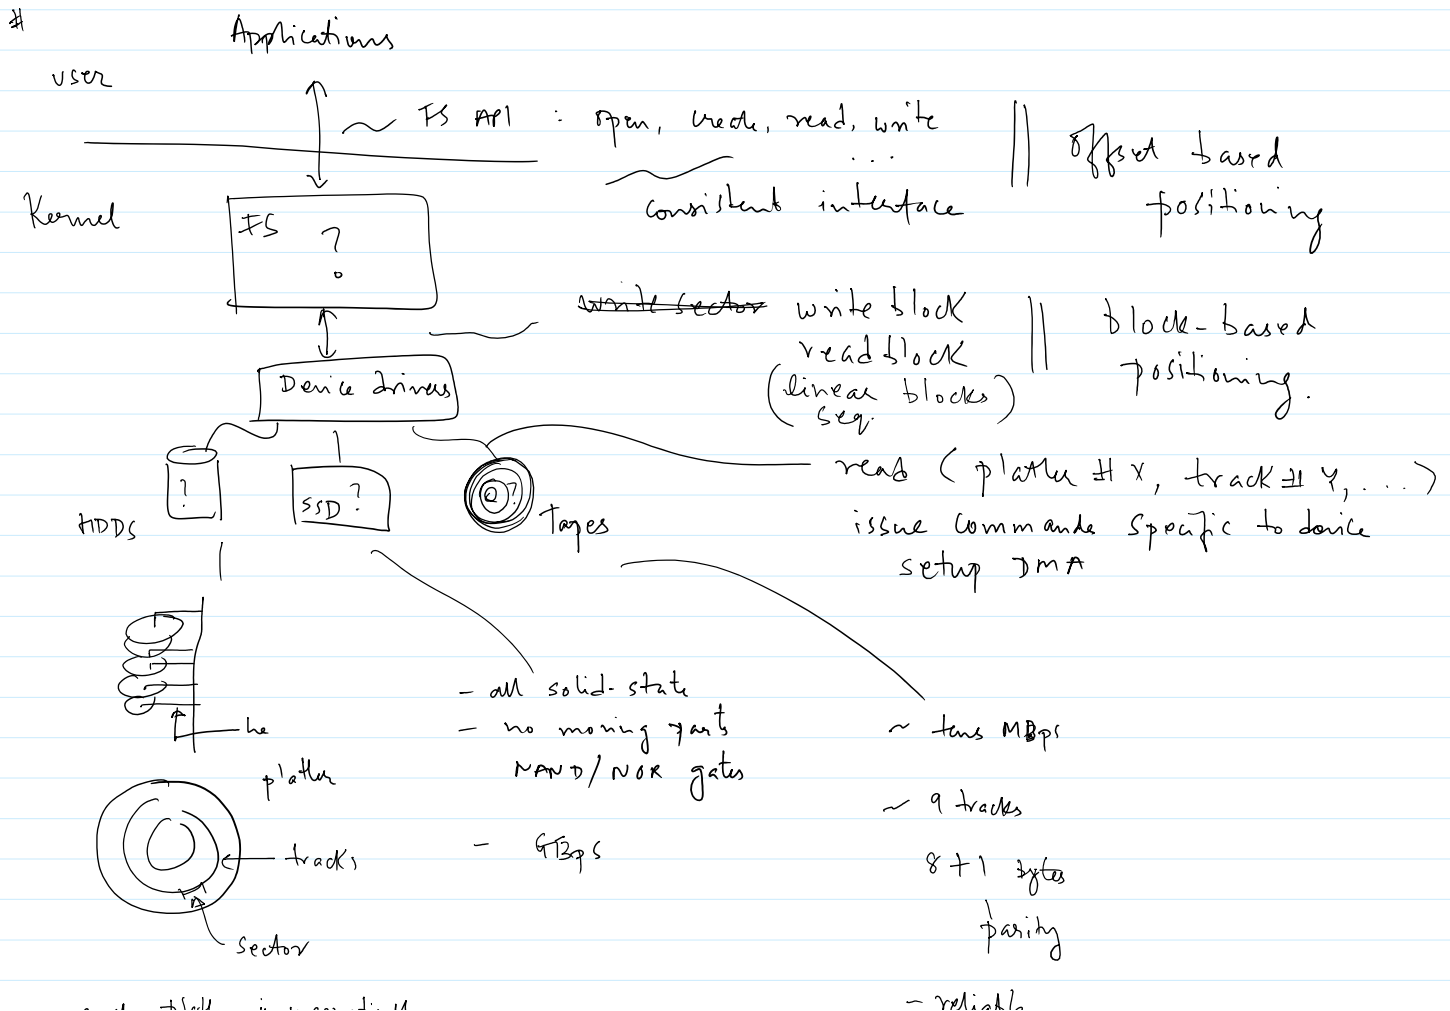 #
Applications
user
FS API : open, create, read, write
...
offset based
positioning
consistent interface
Kernel
FS
?
write sector write block
read block
(linear blocks)
seq.
block-based
positioning.
Device drivers
?
SSD ?
?
HDDs
Tapes
read ( platter # X, track # Y, ... )
issue commands specific to device
setup DMA
he
platter
tracks
sector
- all solid-state
- no moving parts
NAND/NOR gates
- GBps
~ tens MBps
~ 9 tracks
8+1 bytes
parity
- reliable